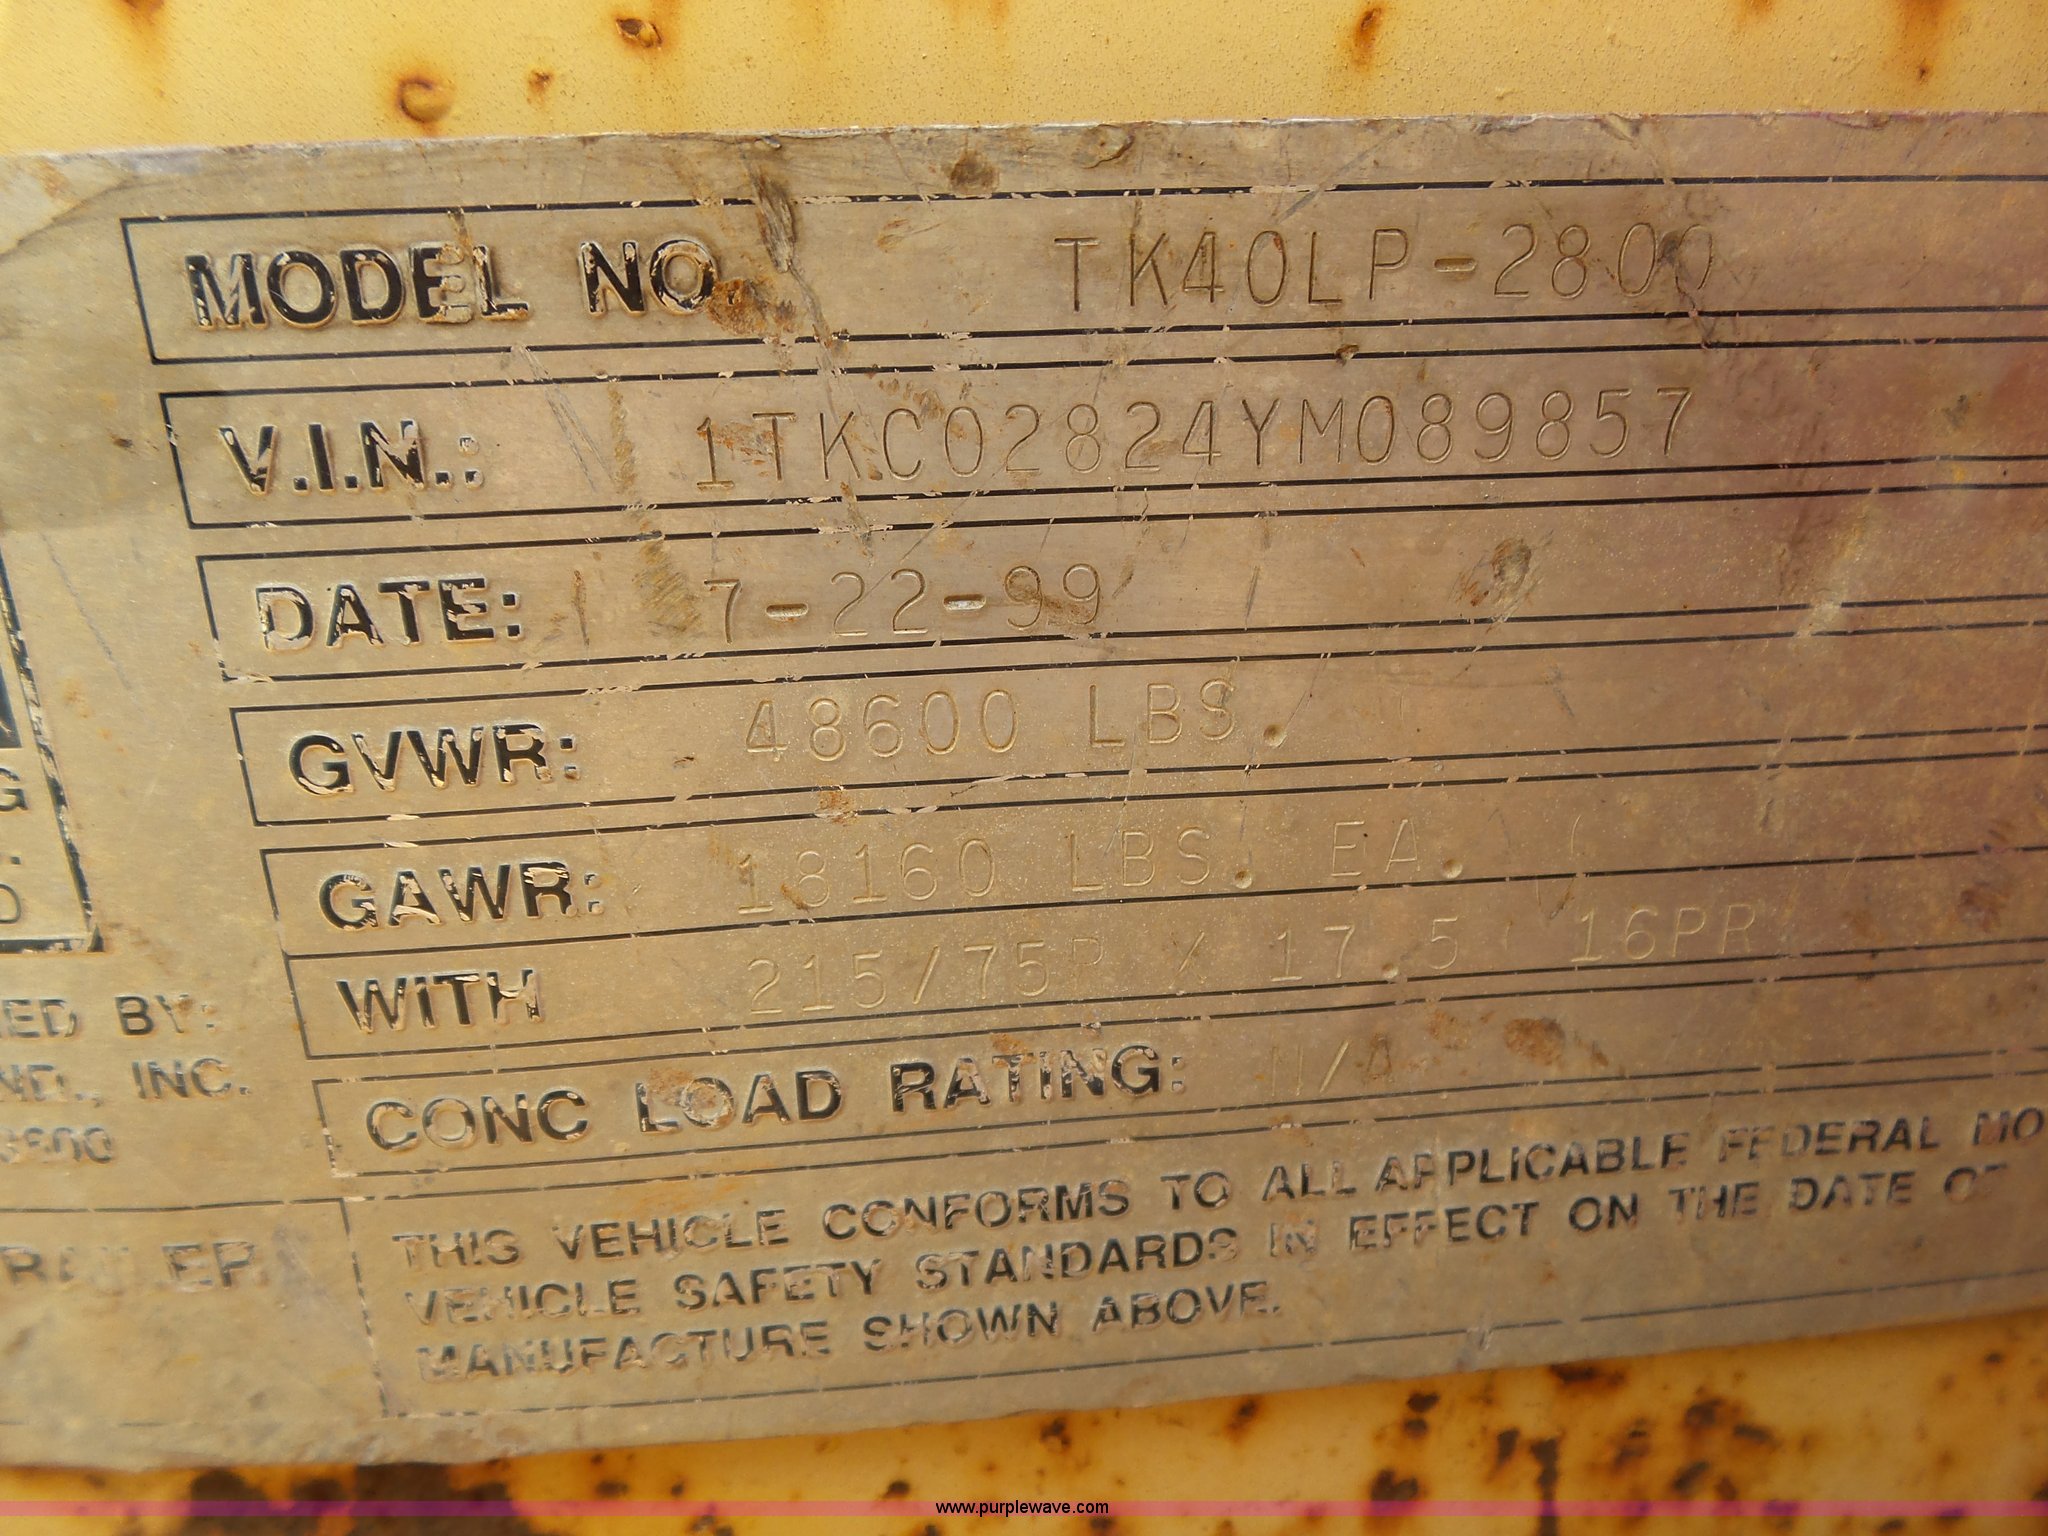 MODEL NO. TK40LP-2800
V.I.N.: 1TKC02824YM089857
DATE: 7-22-99
GVWR: 48600 LBS.
GAWR: 18160 LBS. EA.
WITH 215/75R / 17.5 16PR
CONC LOAD RATING: N/A
THIS VEHICLE CONFORMS TO ALL APPLICABLE FEDERAL MO
VEHICLE SAFETY STANDARDS IN EFFECT ON THE DATE OF
MANUFACTURE SHOWN ABOVE.
G
D
ED BY:
ND., INC.
RAILER
www.purplewave.com